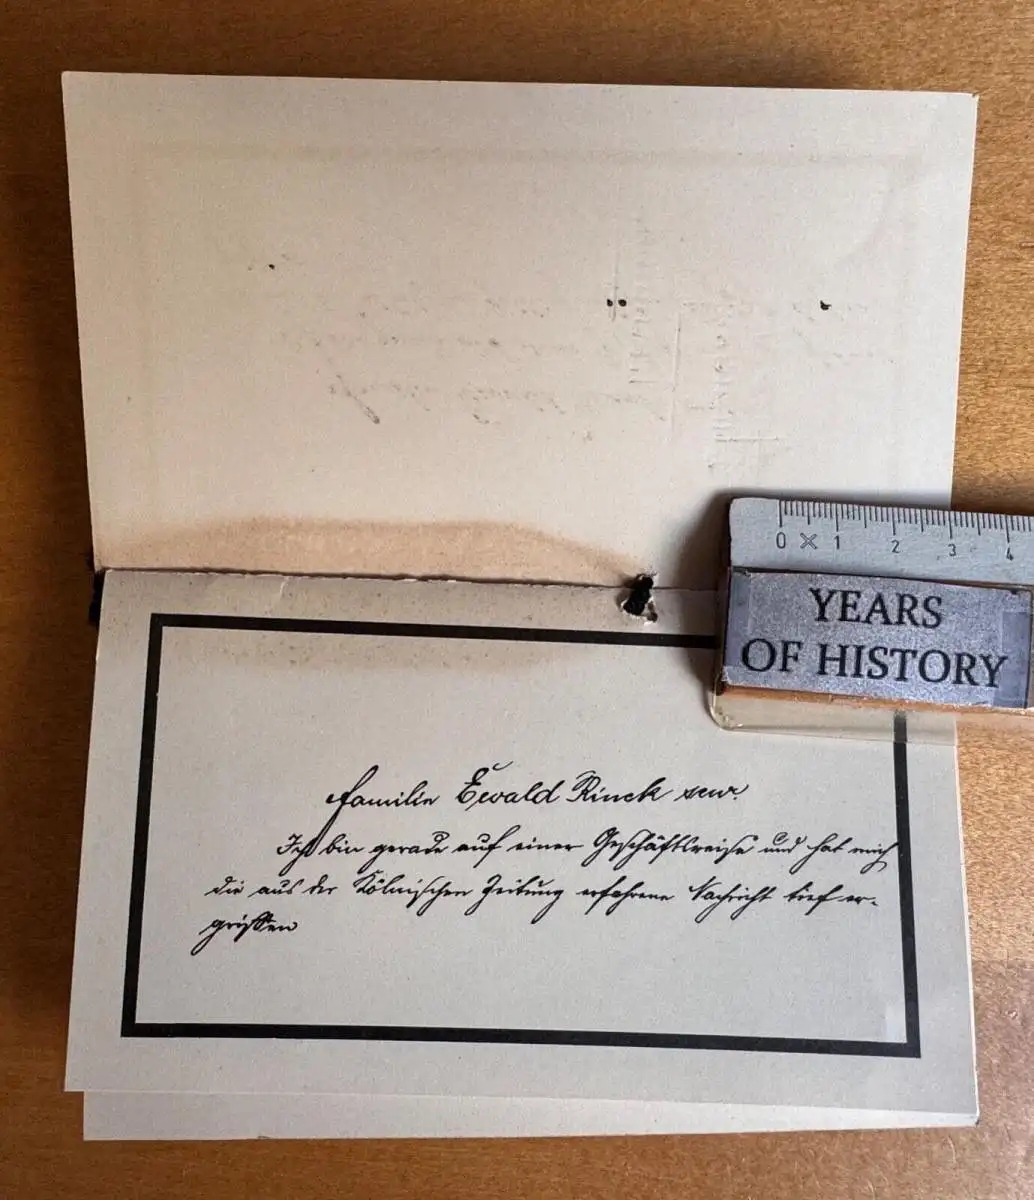 0 1 2 3 4
YEARS
OF HISTORY
Familie Ewald Rinck senr.
Ich bin gerade auf einer Geschäftsreise und hat mich
die aus der Kölnischen Zeitung erfahrene Nachricht tief er-
griffen